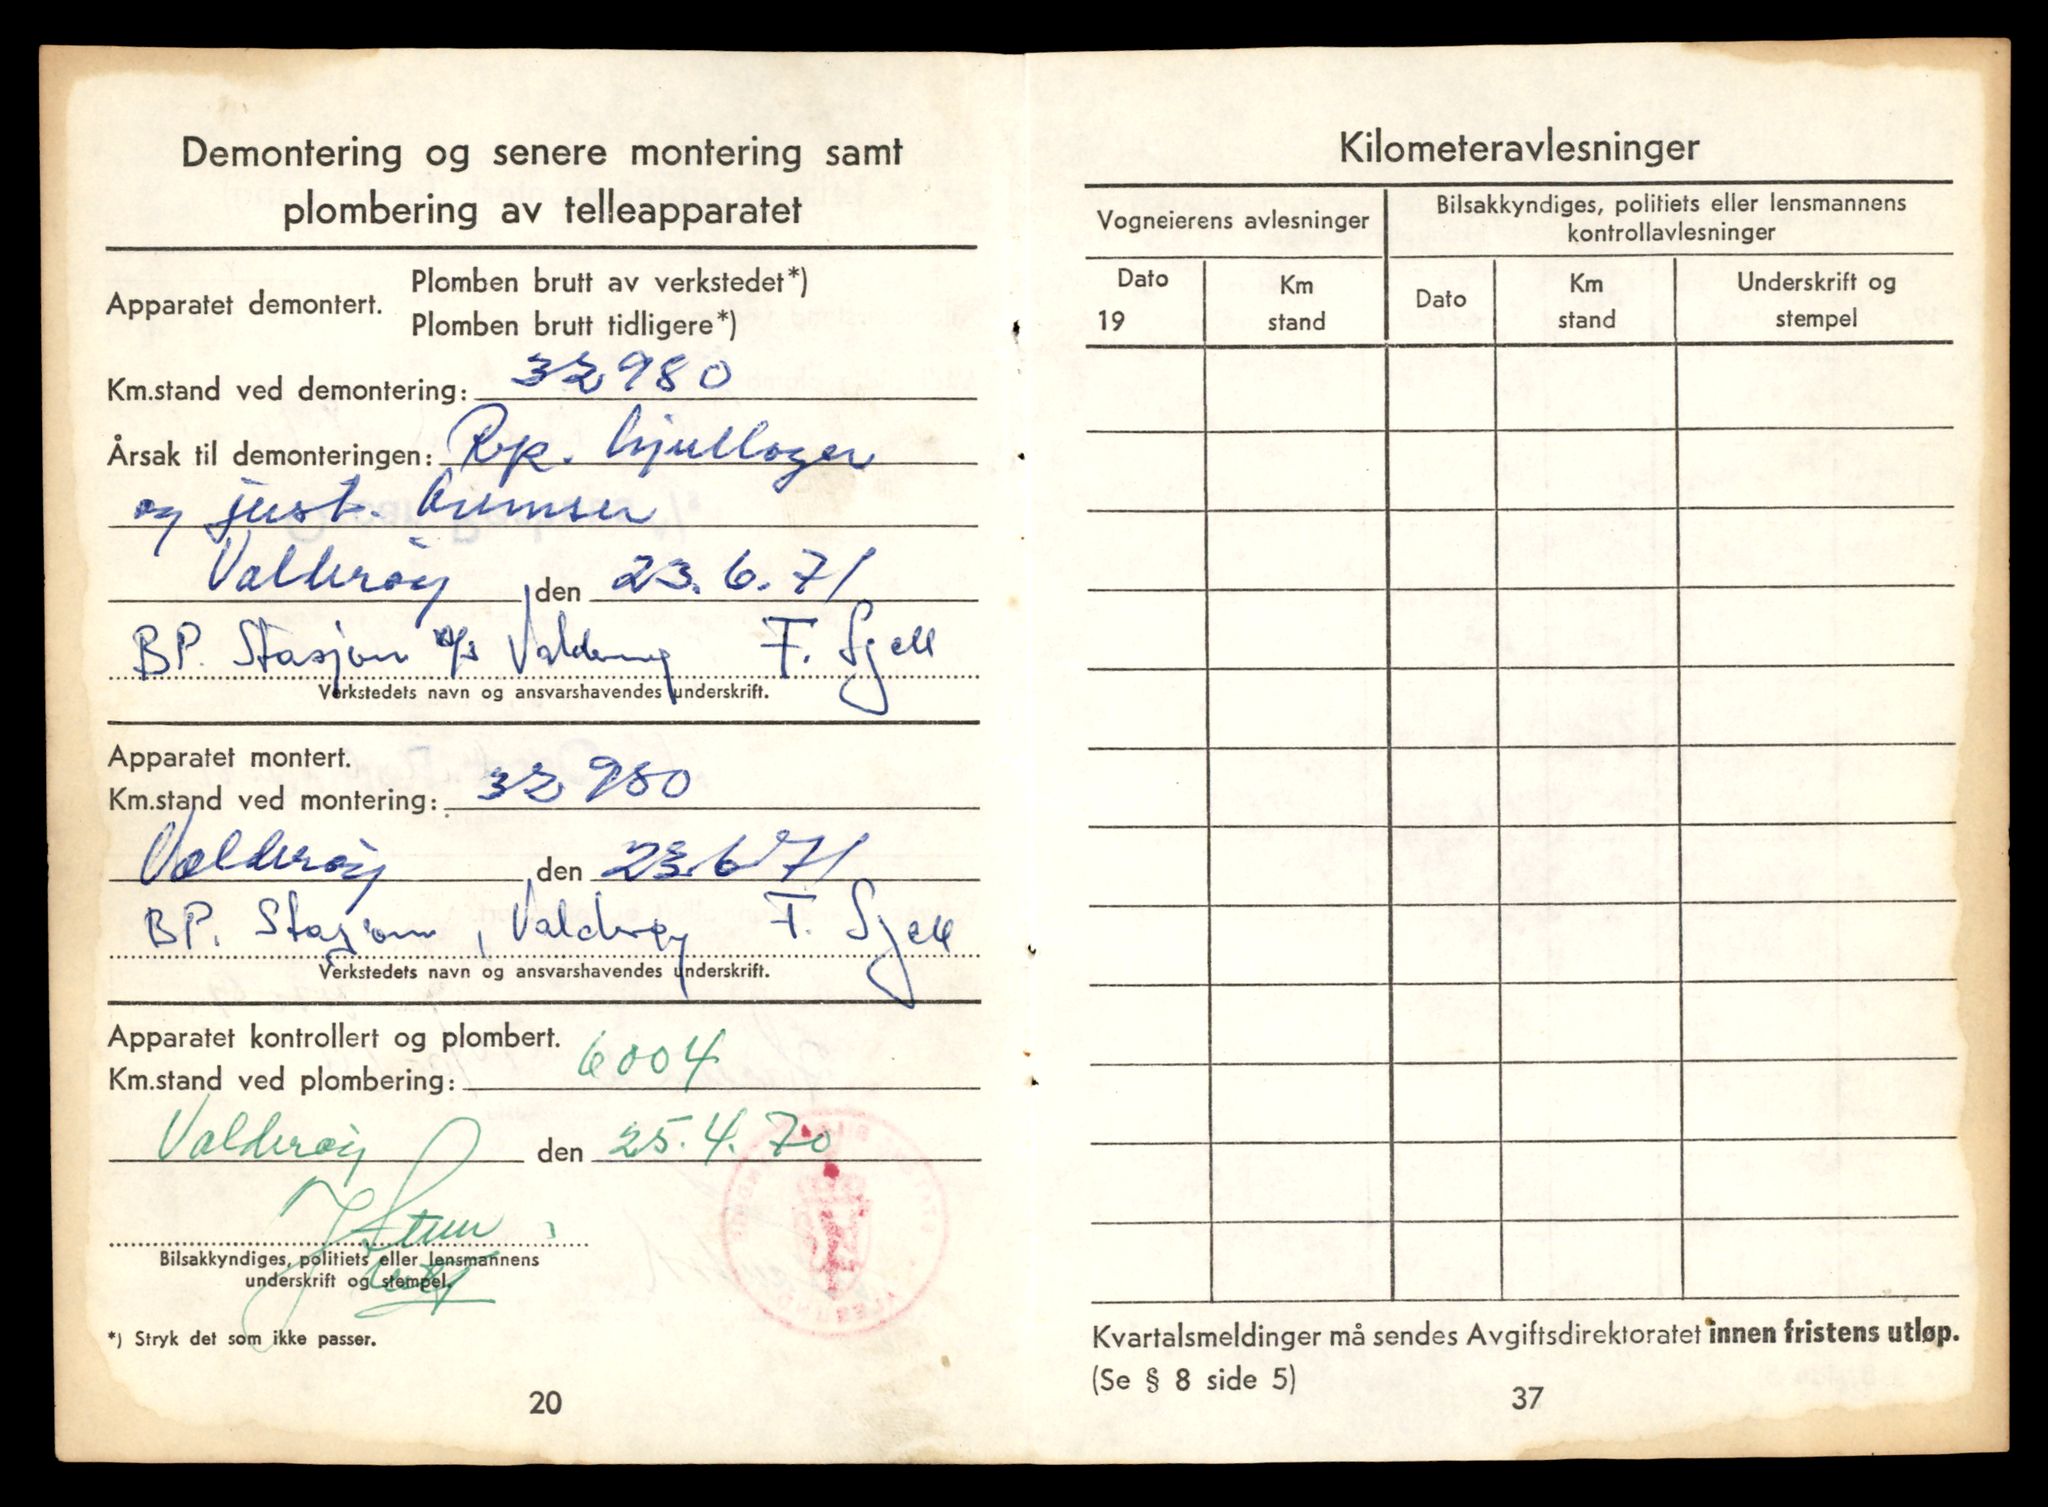 Demontering og senere montering samt
plombering av telleapparatet
Apparatet demontert. Plomben brutt av verkstedet*)
Plomben brutt tidligere*)
Km.stand ved demontering: 32980
Årsak til demonteringen: Rep. hjullager
og just. bremser
Valderøy den 23.6.71
BP. Stasjon a/s Valderøy F. Fjell
Verkstedets navn og ansvarshavendes underskrift.
Apparatet montert.
Km.stand ved montering: 32980
Valderøy den 23.6.71
BP. Stasjon, Valderøy F. Fjell
Verkstedets navn og ansvarshavendes underskrift.
Apparatet kontrollert og plombert.
Km.stand ved plombering: 6004
Valderøy den 25.4.70
Bilsakkyndiges, politiets eller lensmannens
underskrift og stempel.
*) Stryk det som ikke passer.
20
Kilometeravlesninger
Vogneierens avlesninger
Bilsakkyndiges, politiets eller lensmannens
kontrollavlesninger
Dato
19
Km
stand
Dato
Km
stand
Underskrift og
stempel
Kvartalsmeldinger må sendes Avgiftsdirektoratet innen fristens utløp.
(Se § 8 side 5)
37